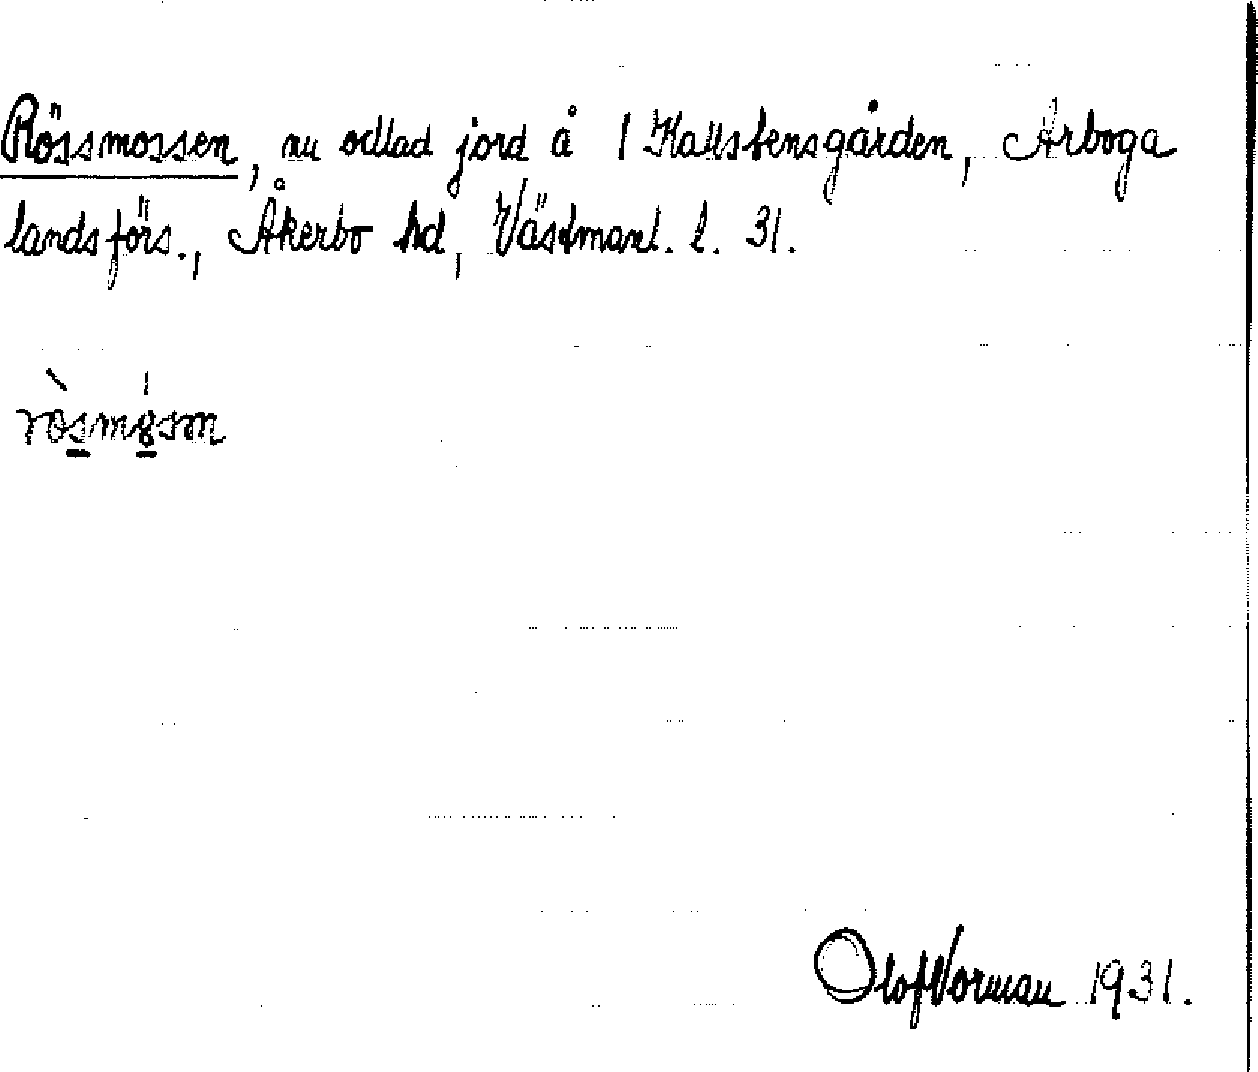 Rössmossen, nu odlad jord å 1 Kallstensgården, Arboga
landsförs., Åkerbo hd, Västmanl. l. 31.
rösmosn
Olof Vorman 1931.